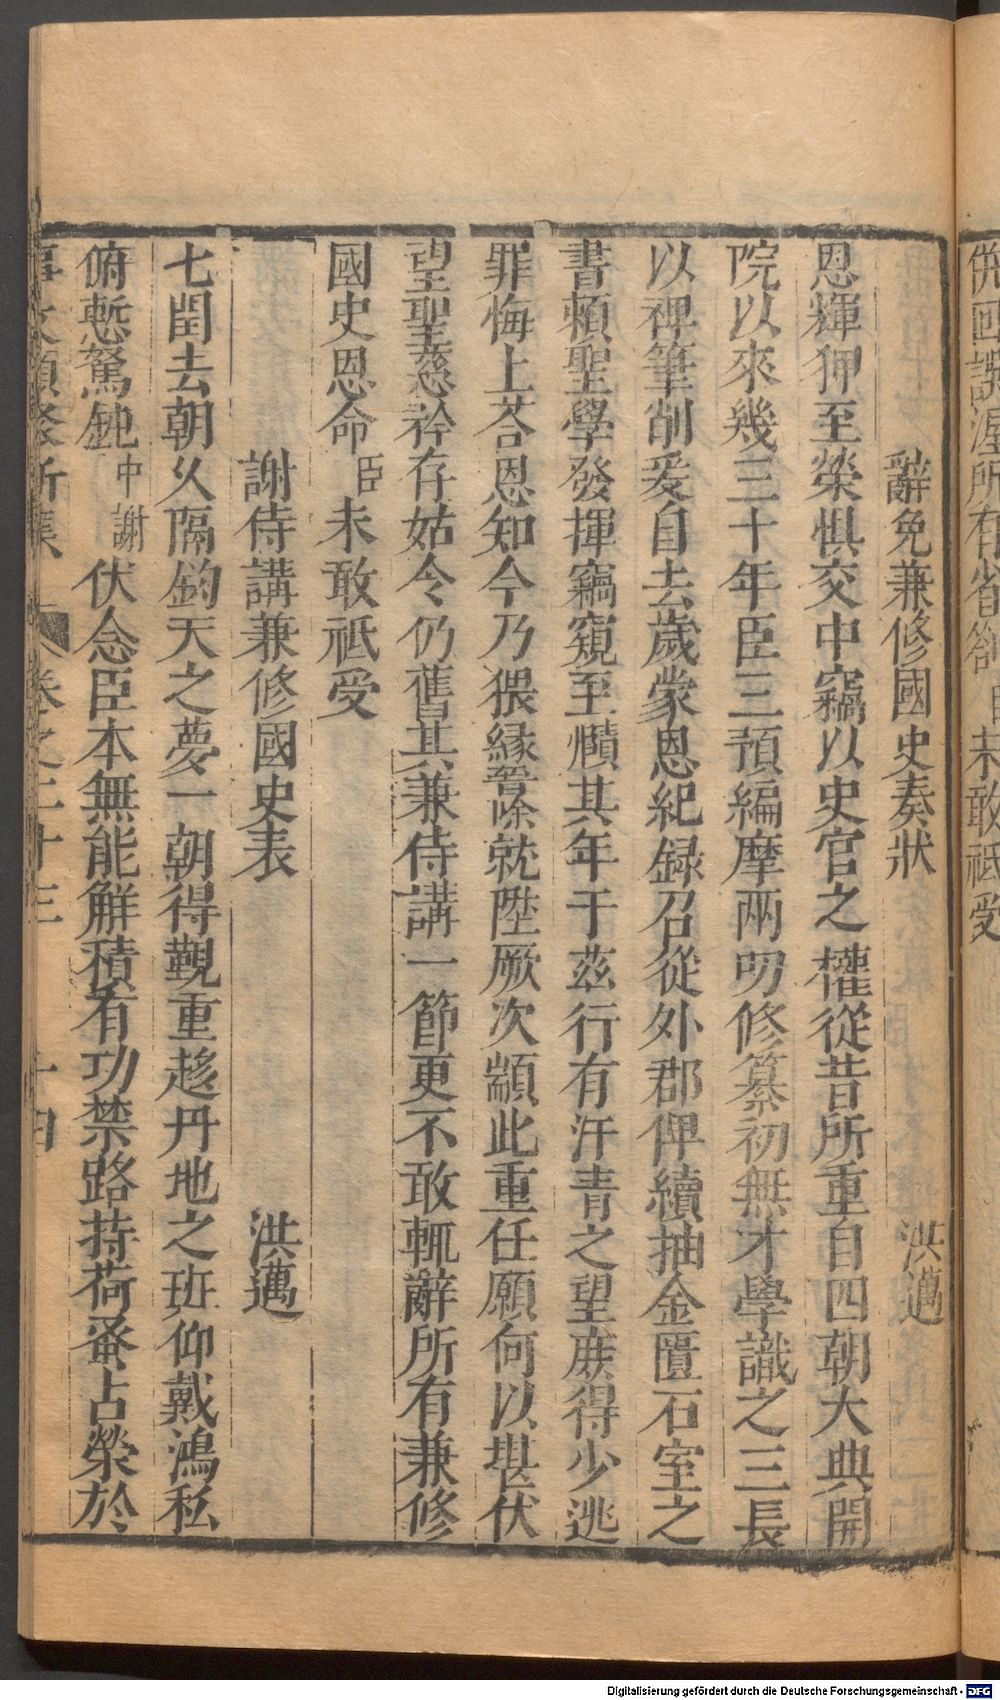 辭免兼修國史奏狀 洪邁
恩輝狎至榮懼交中竊以史官之權從昔所重自四朝大典開
院以來幾三十年臣三預編摩兩叨修纂初無才學識之三長
以裨筆削爰自去歲蒙恩紀録召從外郡俾續抽金匱石室之
書賴聖學發揮竊窺至賾其年于茲行有汗青之望庶得少逃
罪悔上荅恩知今乃猥縁晉除就陞厥次顓此重任願何以堪伏
望聖慈矜存姑令仍舊其兼侍講一節更不敢輒辭所有兼修
國史恩命臣未敢祗受
謝侍講兼修國史表 洪邁
七閏去朝乆隔鈞天之夢一朝得觀重趍丹地之班仰戴鴻私
俯慙駑鈍中謝伏念臣本無能解積有功禁路持荷蚤占榮於
卷之二十三 十四
俱國 所有省劄臣未敢祗受
Digitalisierung gefördert durch die Deutsche Forschungsgemeinschaft - DFG